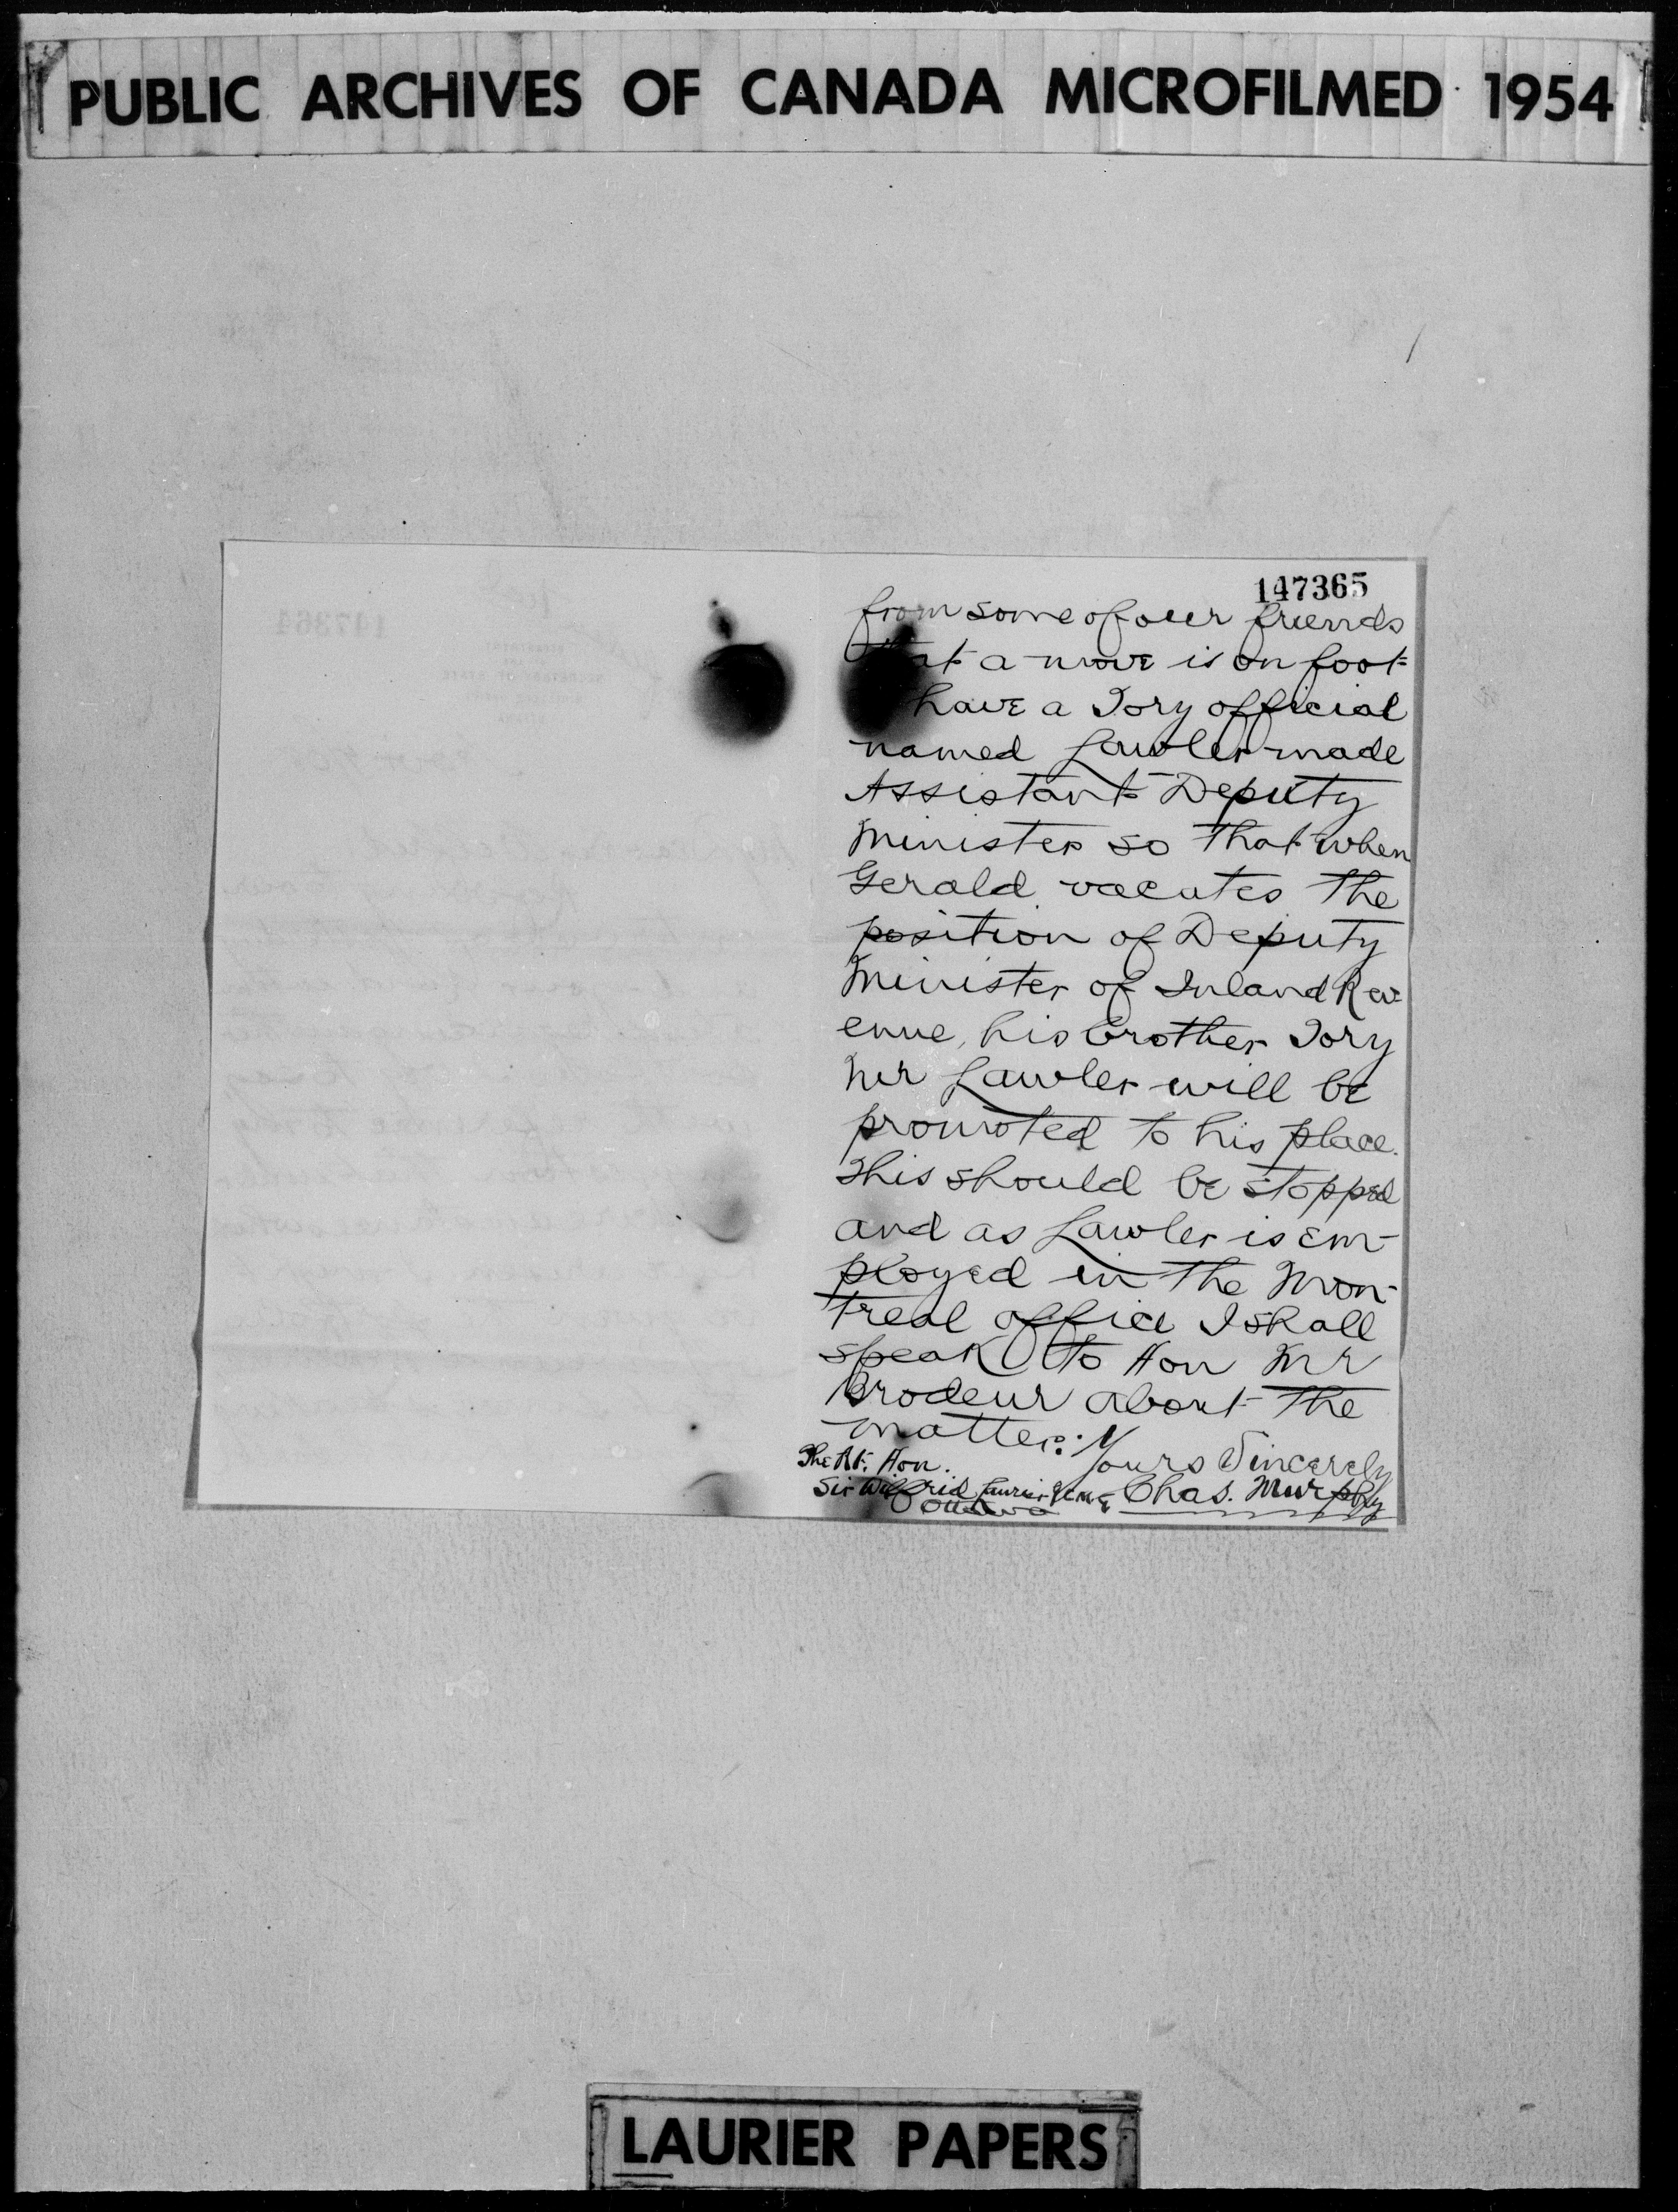 PUBLIC ARCHIVES OF CANADA MICROFILMED 1954
147365
from some of our friends
that a move is on foot
have a Tory official
named Lawler made
Assistant Deputy
Minister so that when
Gerald vacates the
position of Deputy
Minister of Inland Rev-
enue, his brother Tory
Mr Lawler will be
promoted to his place.
This should be stopped
and as Lawler is em-
ployed in the Mon-
treal office I shall
speak to Hon Mr
Brodeur about the
matter.
Yours Sincerely
Chas. Murphy
The Rt. Hon.
Sir Wilfrid Laurier
Ottawa
LAURIER PAPERS